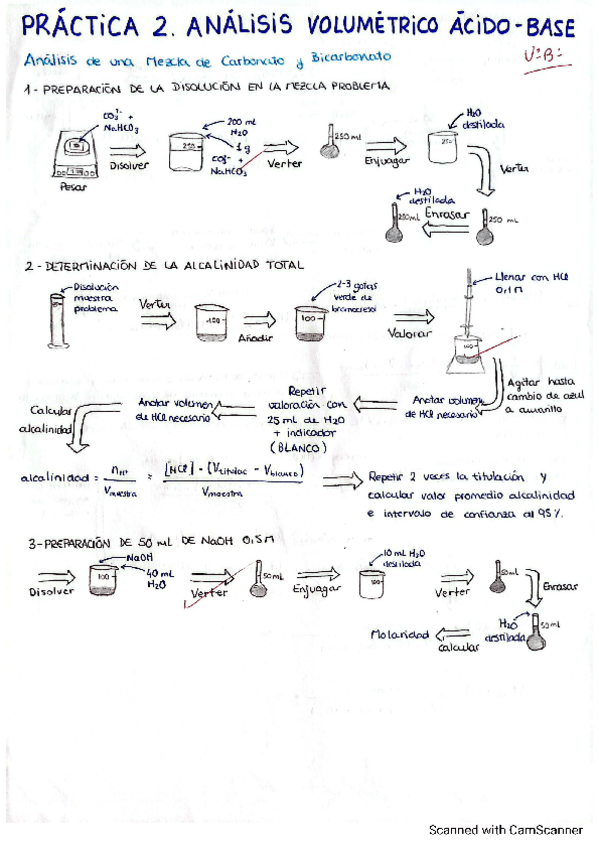 PRÁCTICA 2. ANÁLISIS VOLUMÉTRICO ÁCIDO-BASE
Análisis de una Mezcla de Carbonato y Bicarbonato
V:B:
1- PREPARACIÓN DE LA DISOLUCIÓN EN LA MEZCLA PROBLEMA
CO₃²⁻ +
NaHCO₃
Pesar
Disolver
200 ml
H₂O
1g
CO₃²⁻ +
NaHCO₃
250
Verter
250 ml
Enjuagar
H₂O
destilada
250
Verter
250 ml
Enrasar
H₂O
destilada
250ml
2- DETERMINACIÓN DE LA ALCALINIDAD TOTAL
Disolución
muestra
problema
Verter
100
Añadir
2-3 gotas
verde de
bromocresol
100
Valorar
Llenar con HCl
0,1M
100
Agitar hasta
cambio de azul
a amarillo
Anotar volumen
de HCl necesario
Repetir
valoración con
25 ml de H₂O
+ indicador
(BLANCO)
Anotar volumen
de HCl necesario
Calcular
alcalinidad
alcalinidad = n_H⁺ / V_muestra = [HCl] · (V_titulac - V_blanco) / V_muestra
Repetir 2 veces la titulación y
calcular valor promedio alcalinidad
e intervalo de confianza al 95%.
3- PREPARACIÓN DE 50 mL DE NaOH 0,5M
Disolver
NaOH
40 mL
H₂O
100
Verter
50ml
Enjuagar
10 mL H₂O
destilada
100
Verter
50ml
Enrasar
H₂O
destilada
50ml
calcular
Molaridad
Scanned with CamScanner